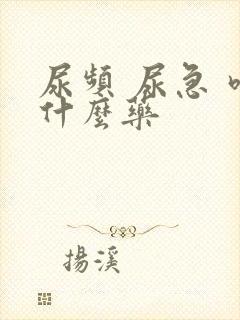 尿頻 尿急
什麼藥
揚溪